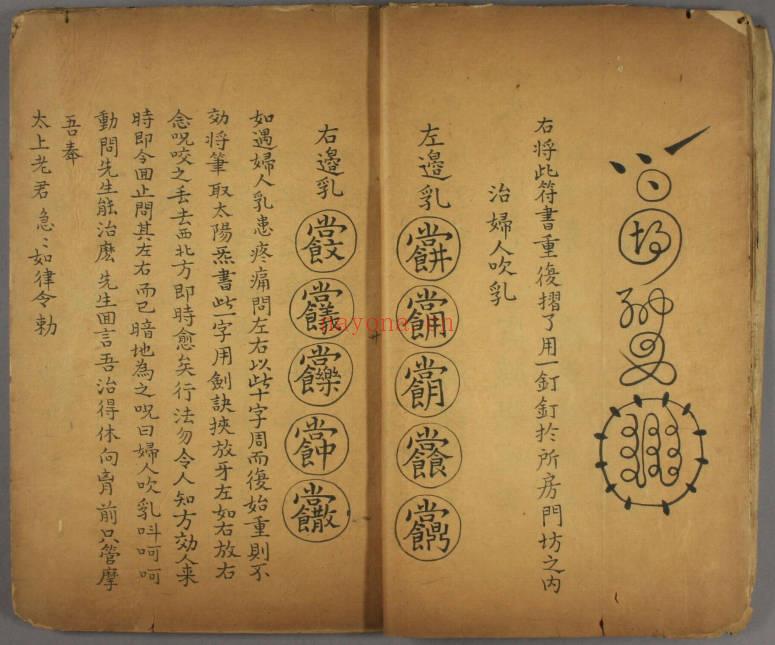 右将此符書重復摺了用一釘釘扵所房門坊之内
治婦人吹乳
左邊乳
右邊乳
如遇婦人乳患疼痛問左右以此十字周而復始重則不
効将筆取太陽炁書此一字用劍訣挾放牙左如右放右
念呪咬之丢去西北方即時愈矣行法勿令人知方効人来
時即令囬止問其左右而已暗地為之呪曰婦人吹乳呌呵呵
動問先生能治麽先生囬言吾治得休向胷前只管摩
吾奉
太上老君急〻如律令勅
nayona.cn